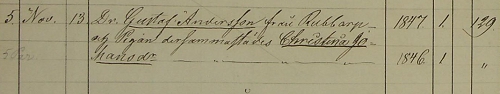 5. Nov. 13. Dr. Gustaf Andersson från Rubbarp 1847 1. 129
och Pigan dersammastädes Christina Jo-
hansdr " " " " " 1846 1 "